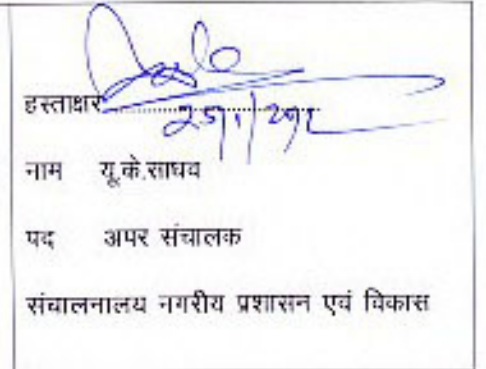 हस्ताक्षर..............................
नाम यू.के.साधव
पद अपर संचालक
संचालनालय नगरीय प्रशासन एवं विकास